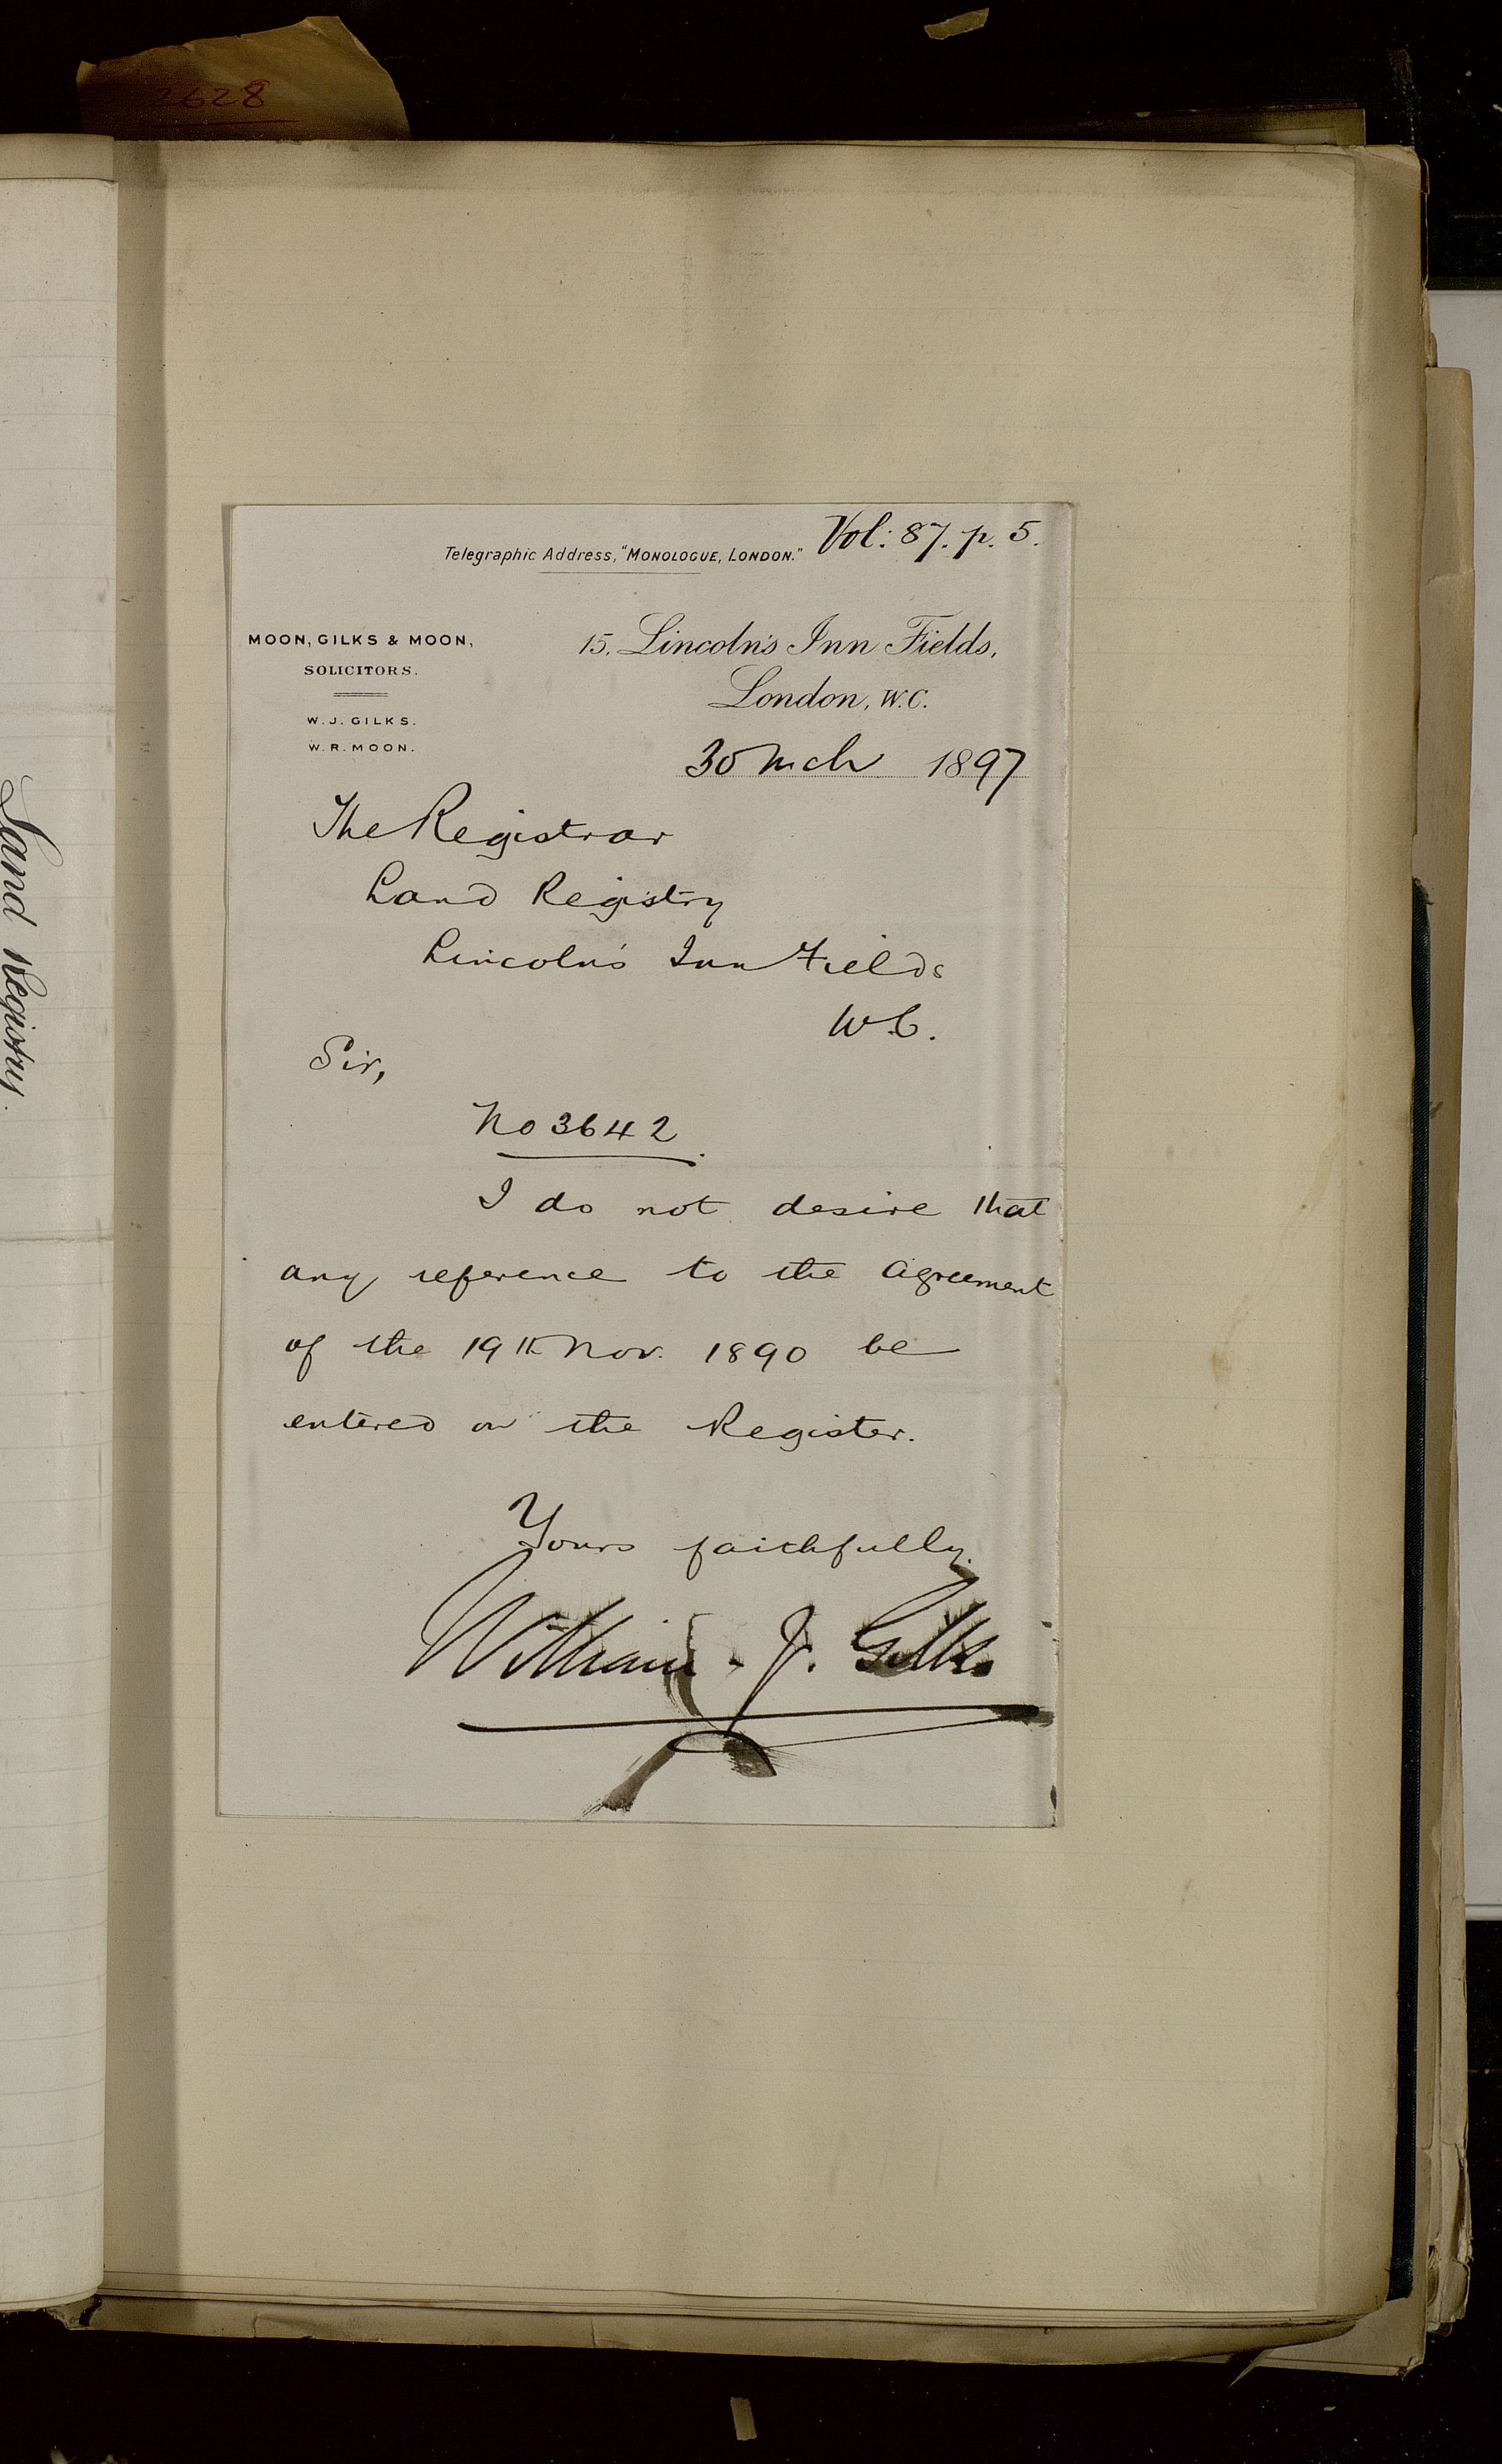 2628
Vol: 87. p. 5.
Telegraphic Address, "MONOLOGUE, LONDON."
MOON, GILKS & MOON,
SOLICITORS.
W. J. GILKS.
W. R. MOON.
15, Lincoln's Inn Fields,
London, W.C.
30 Mch 1897
The Registrar
Land Registry
Lincoln's Inn Fields
W.C.
Sir,
No 3642
I do not desire that
any reference to the Agreement
of the 19th Nov. 1890 be
entered on the Register.
Yours faithfully.
William. J. Gilks
Land Registry.